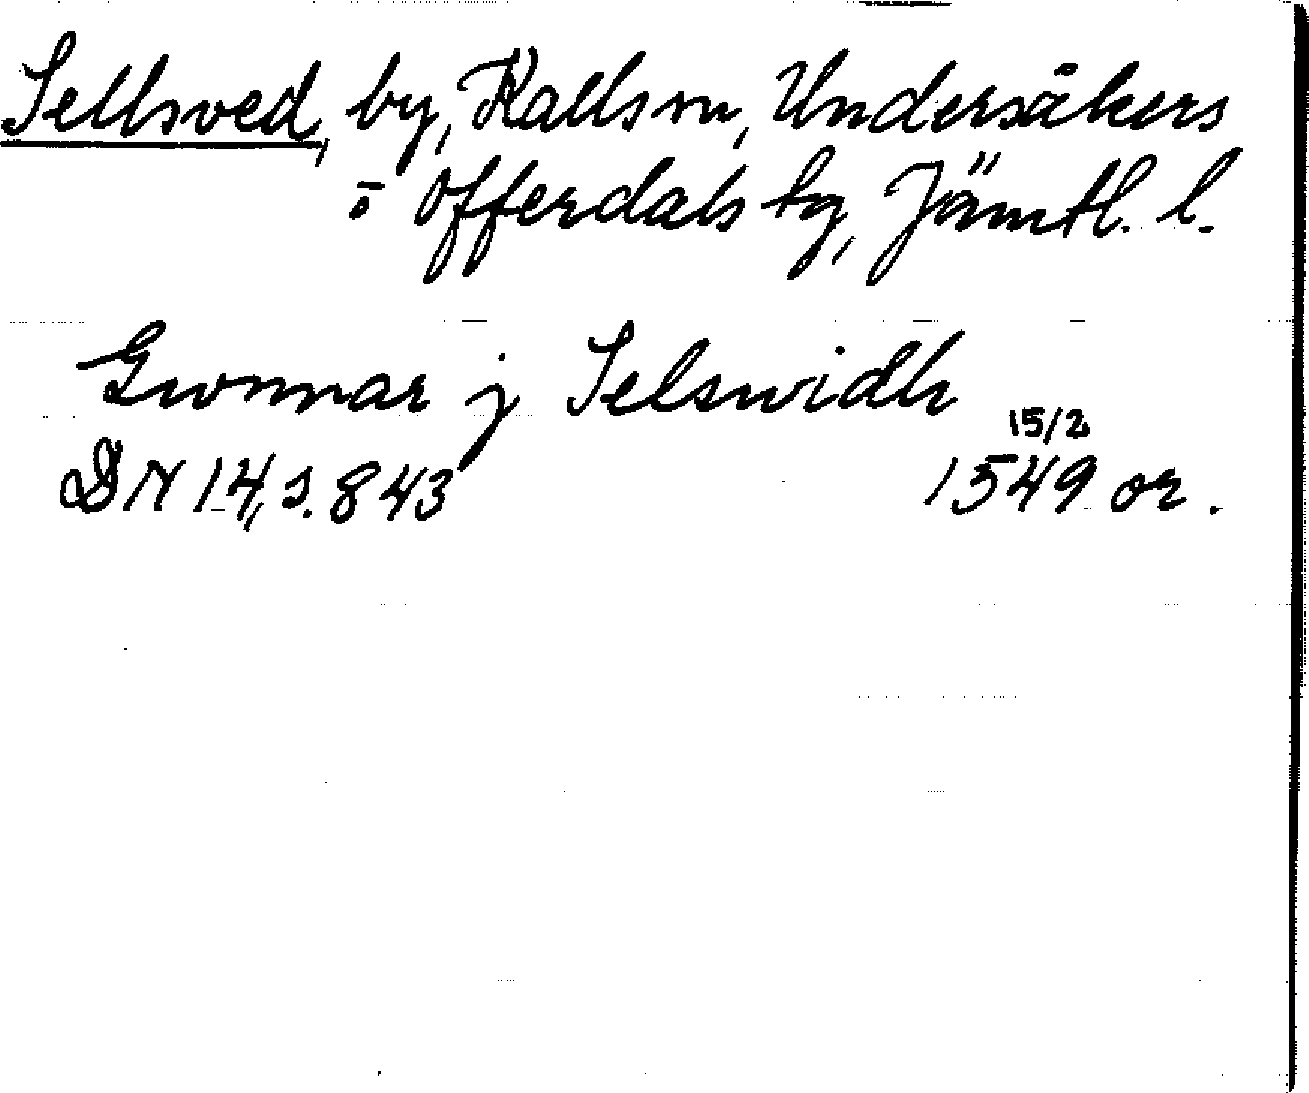 Sellsved, by, Kalls sn, Undersåkers
o Offerdals tg, Jämtl. l.
Gwnnar j Selswidh
15/2
DN 14, s. 843 1549 or.